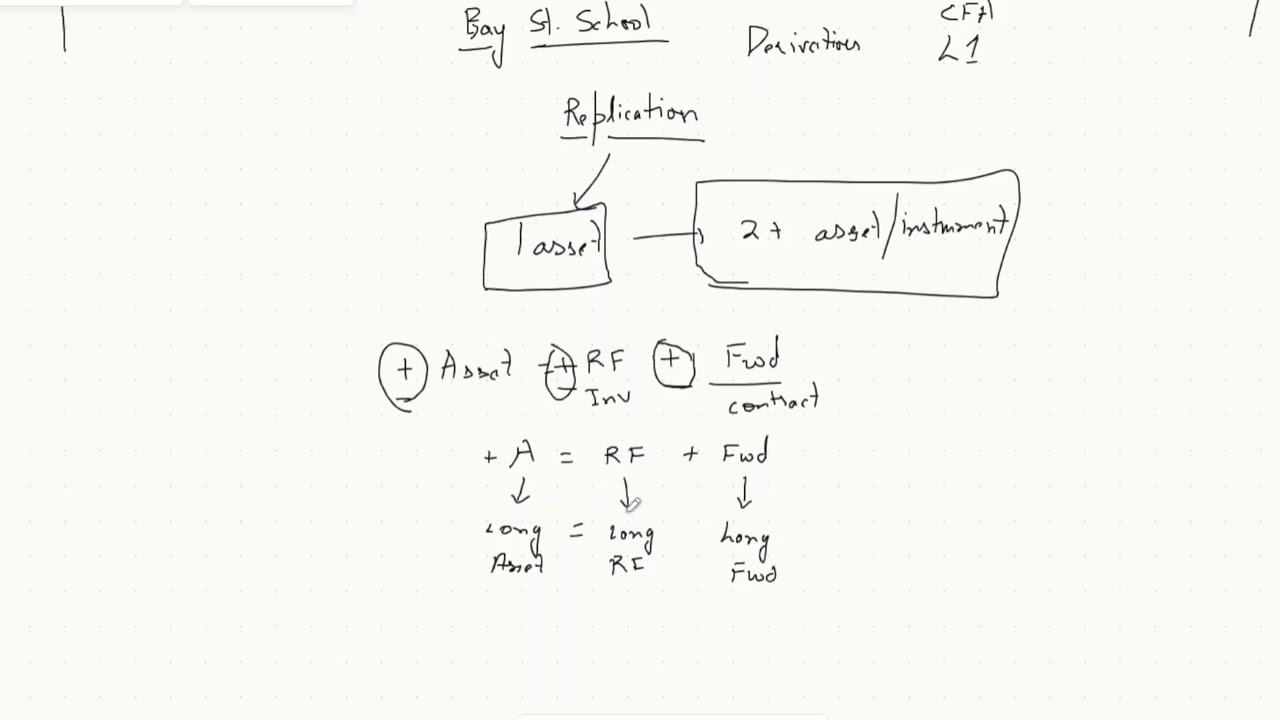 Bay St. School Derivatives CFA
L1
Replication
1 asset → 2+ asset/instrument
+ Asset + RF + Fwd
Inv contract
+ A = RF + Fwd
Long = Long Long
Asset RF Fwd